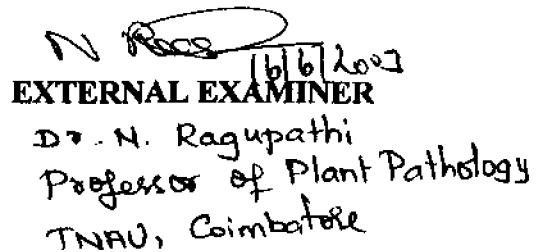 N
16/6/2003
EXTERNAL EXAMINER
Dr. N. Ragupathi
Professor of Plant Pathology
TNAU, Coimbatore